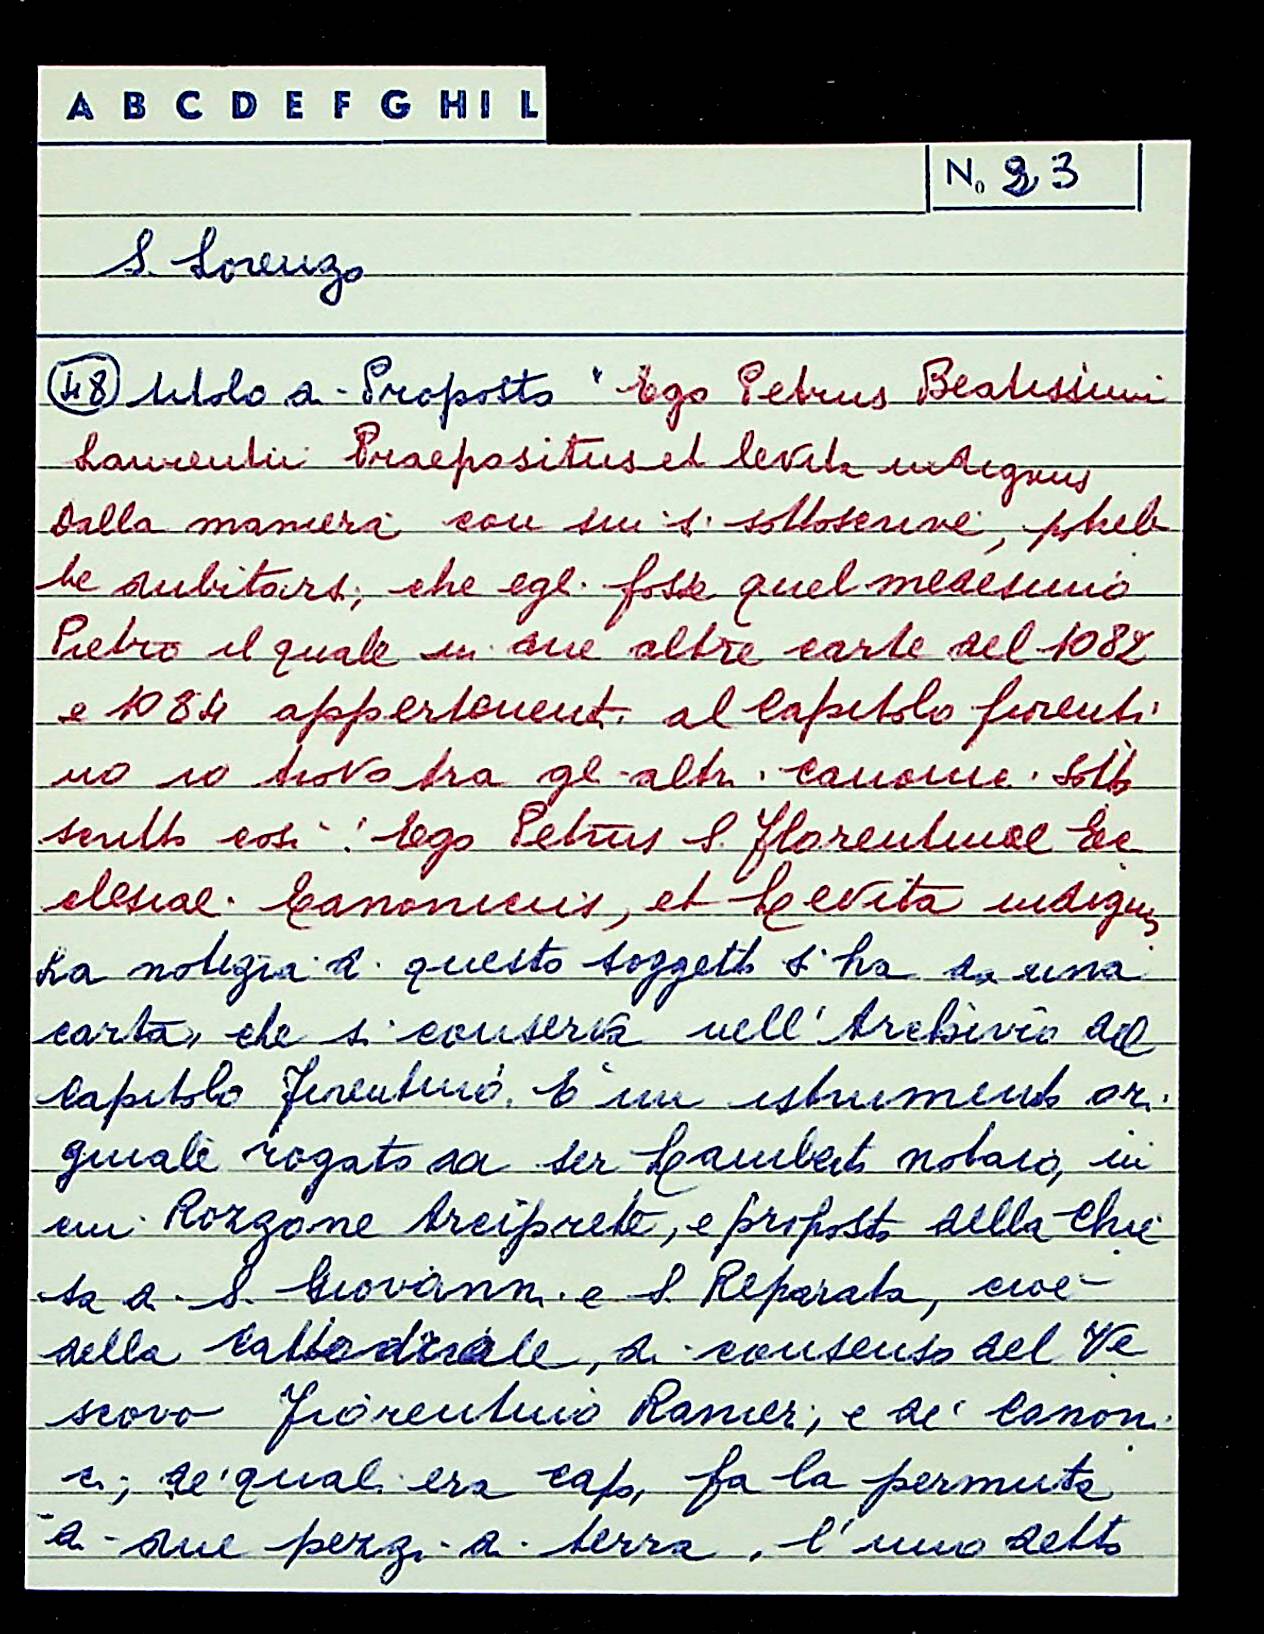 A B C D E F G H I L
No 23
S. Lorenzo
48 titolo di Proposto " Ego Petrus Beatissimi
Laurentii Praepositus et levita indignus
Dalla maniera con cui si sottoscrive, potreb
be dubitarsi, che egli fosse quel medesimo
Pietro il quale in due altre carte del 1082
e 1084 appertenenti al Capitolo fiorenti
no io trovo tra gli altri canonici sotto
scritto così: Ego Petrus S. Florentinae Ec
clesiae. Canonicus, et Levita indignus
La notizia di questo soggetto si ha da una
carta, che si conserva nell'Archivio del
Capitolo Fiorentino. È un istrumento ori
ginale rogato da ser Lamberto notaio, in
cui Rozzone Arciprete, e proposto della Chie
sa di S. Giovanni e S. Reparata, cioè
della Cattedrale, di consenso del Ve
scovo Fiorentino Ranieri, e de' Canoni
ci, de' quali era capo, fa la permuta
di due pezzi di terra, l'uno detto